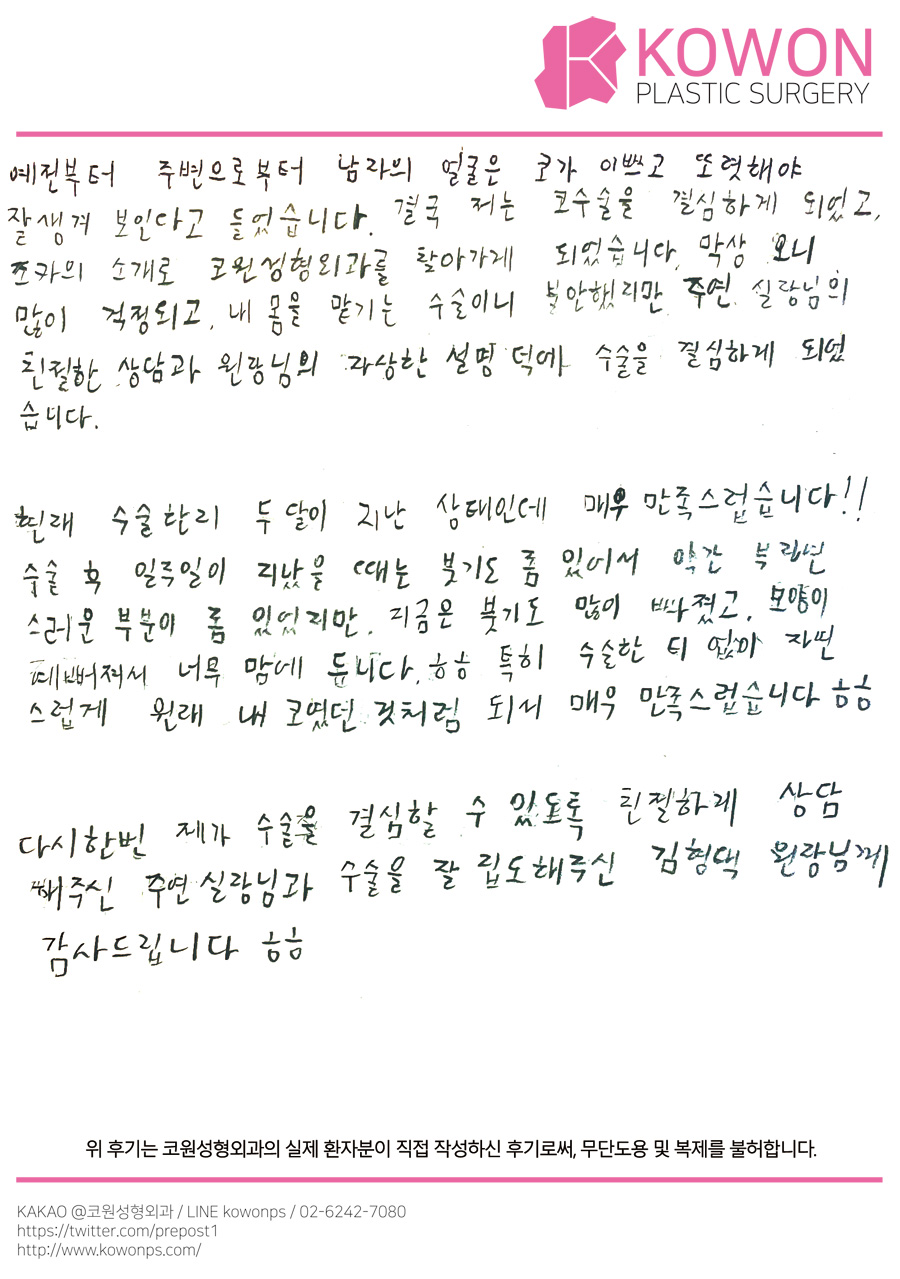 KOWON
PLASTIC SURGERY
예전부터 주변으로부터 남자의 얼굴은 코가 이쁘고 또렷해야
잘생겨 보인다고 들었습니다. 결국 저는 코수술을 결심하게 되었고,
조카의 소개로 코원성형외과를 찾아가게 되었습니다. 막상 오니
많이 걱정되고, 내 몸을 맡기는 수술이니 불안했지만 주연 실장님의
친절한 상담과 원장님의 자상한 설명 덕에 수술을 결심하게 되었
습니다.
현재 수술한지 두달이 지난 상태인데 매우 만족스럽습니다!!
수술 후 일주일이 지났을 때는 붓기도 좀 있어서 약간 부자연
스러운 부분이 좀 있었지만, 지금은 붓기도 많이 빠졌고, 모양이
예뻐져서 너무 맘에 듭니다. ㅎㅎ 특히 수술한 티 없이 자연
스럽게 원래 내 코였던 것처럼 되서 매우 만족스럽습니다 ㅎㅎ
다시한번 제가 수술을 결심할 수 있도록 친절하게 상담
해주신 주연실장님과 수술을 잘 집도해주신 김형택 원장님께
감사드립니다 ㅎㅎ
위 후기는 코원성형외과의 실제 환자분이 직접 작성하신 후기로써, 무단도용 및 복제를 불허합니다.
KAKAO @코원성형외과 / LINE kowonps / 02-6242-7080
https://twitter.com/prepost1
http://www.kowonps.com/